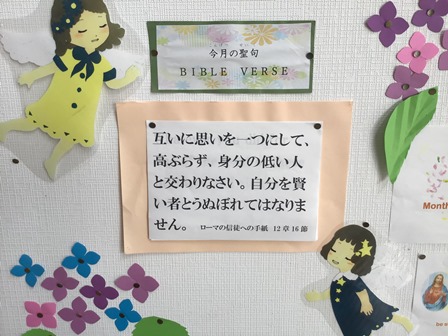 今月の聖句
BIBLE VERSE
互いに思いを一つにして、
高ぶらず、身分の低い人
と交わりなさい。自分を賢
い者とうぬぼれてはなりま
せん。
ローマの信徒への手紙 12章16節
Month